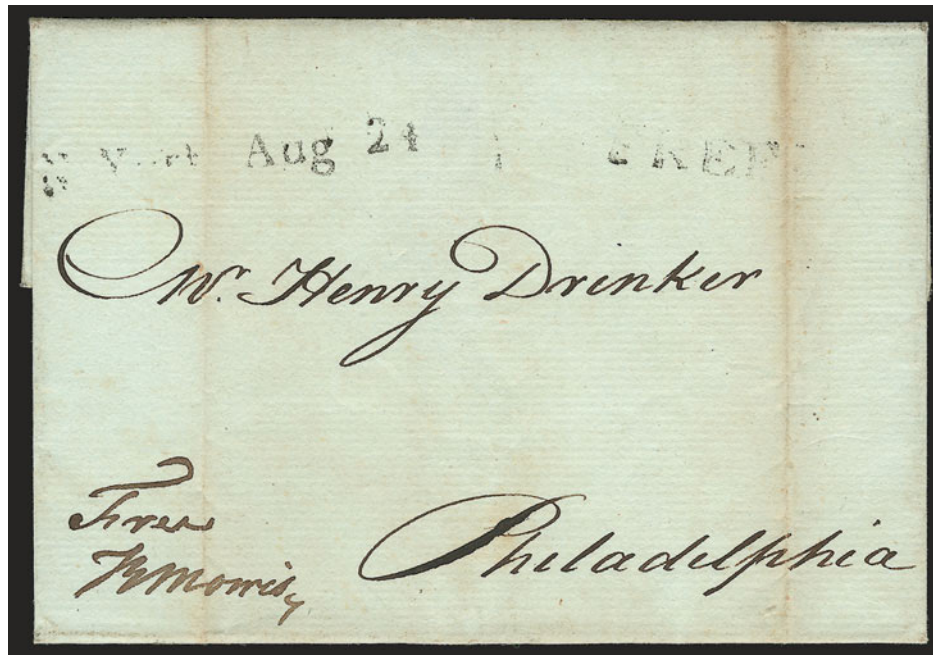 Aug 24
Mr. Henry Drinker
Philadelphia
Free
R Morris